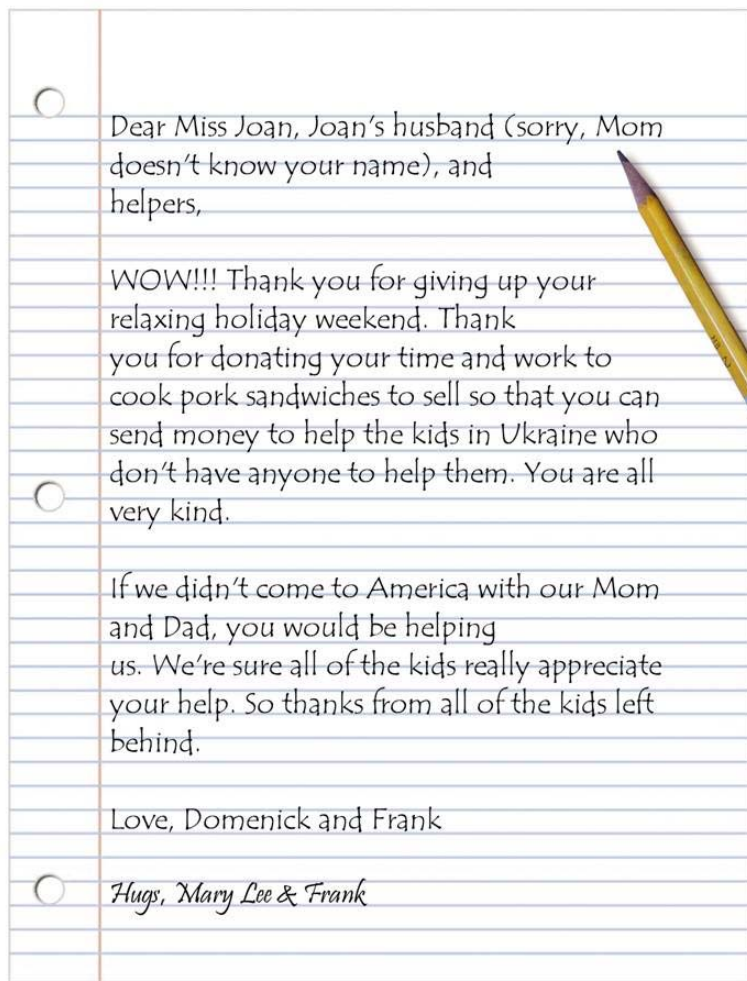 Dear Miss Joan, Joan's husband (sorry, Mom
doesn't know your name), and
helpers,
WOW!!! Thank you for giving up your
relaxing holiday weekend. Thank
you for donating your time and work to
cook pork sandwiches to sell so that you can
send money to help the kids in Ukraine who
don't have anyone to help them. You are all
very kind.
If we didn't come to America with our Mom
and Dad, you would be helping
us. We're sure all of the kids really appreciate
your help. So thanks from all of the kids left
behind.
Love, Domenick and Frank
Hugs, Mary Lee & Frank